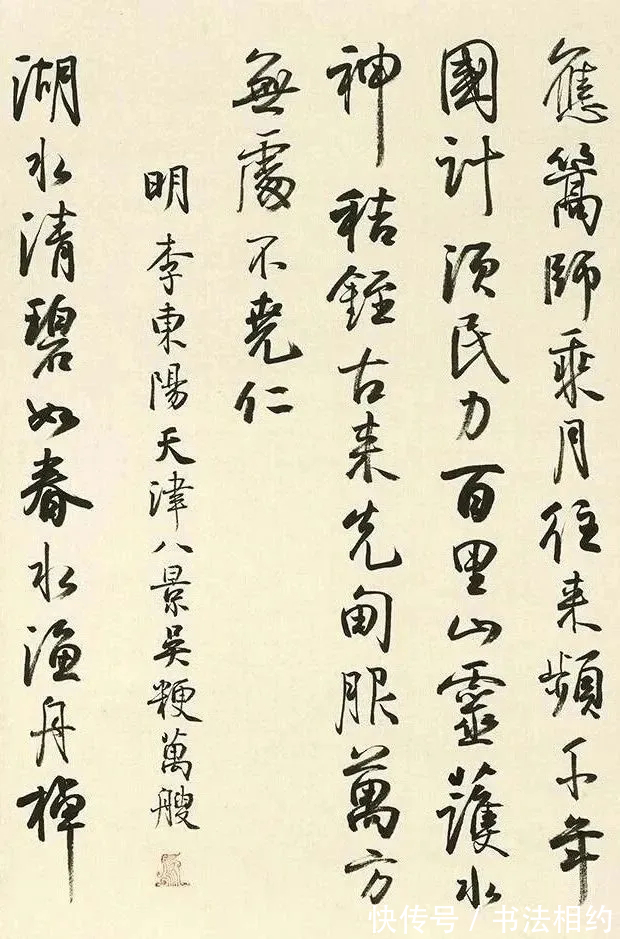 應篙師乘月往來頻千年
國計須民力百里山靈護水
神秸銍古來先甸服萬方
無處不堯仁
明李東陽天津八景吳粳萬艘
湖水清碧如春水漁舟棹
快传号/书法相约